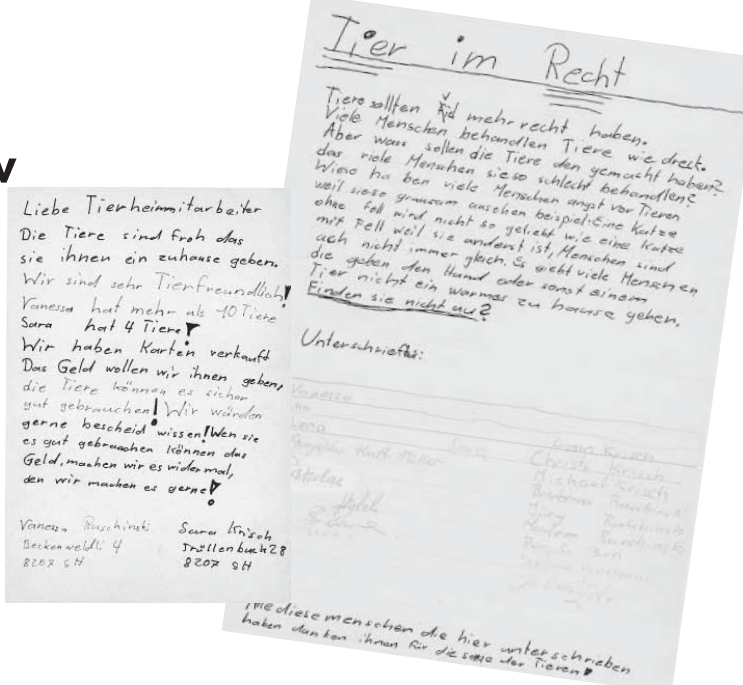 v
Liebe Tierheimmitarbeiter
Die Tiere sind froh das
sie ihnen ein zuhause geben.
Wir sind sehr Tierfreundlich!
Vanessa hat mehr als 10 Tiere
Sara hat 4 Tiere!
Wir haben Karten verkauft
Das Geld wollen wir ihnen geben,
die Tiere können es sicher
gut gebrauchen! Wir würden
gerne bescheid wissen! Wen sie
es gut gebrauchen können das
Geld, machen wir es widermal,
den wir machen es gerne!
Vanessa Ruschinski
Beckenweldli 4
8207 SH
Sara Krisch
Trüllenbuck 28
8207 SH
Tier im Recht
Tiere sollten mehr recht haben.
Viele Menschen behandlen Tiere wie dreck.
Aber was sollen die Tiere den gemacht haben?
das viele Menschen sie so schlecht behandlen?
Wieso haben viele Menschen angst vor Tieren
weil sie so grausam ansehen beispiel: Eine Katze
ohne fell wird nicht so geliebt wie eine Katze
mit Fell weil sie anderst ist, Menschen sind
ach nicht immer gleich. Es giebt viele Menschen
die geben den Hund oder sonst einem
Tier nicht ein warmes zu hause geben,
Finden sie nicht au?
Unterschriften:
Vanessa
Lena
Krisch
Christa Krisch
Michael Krisch
diese menschen die hier unterschrieben
haben danken ihnen für die sorge der Tieren!